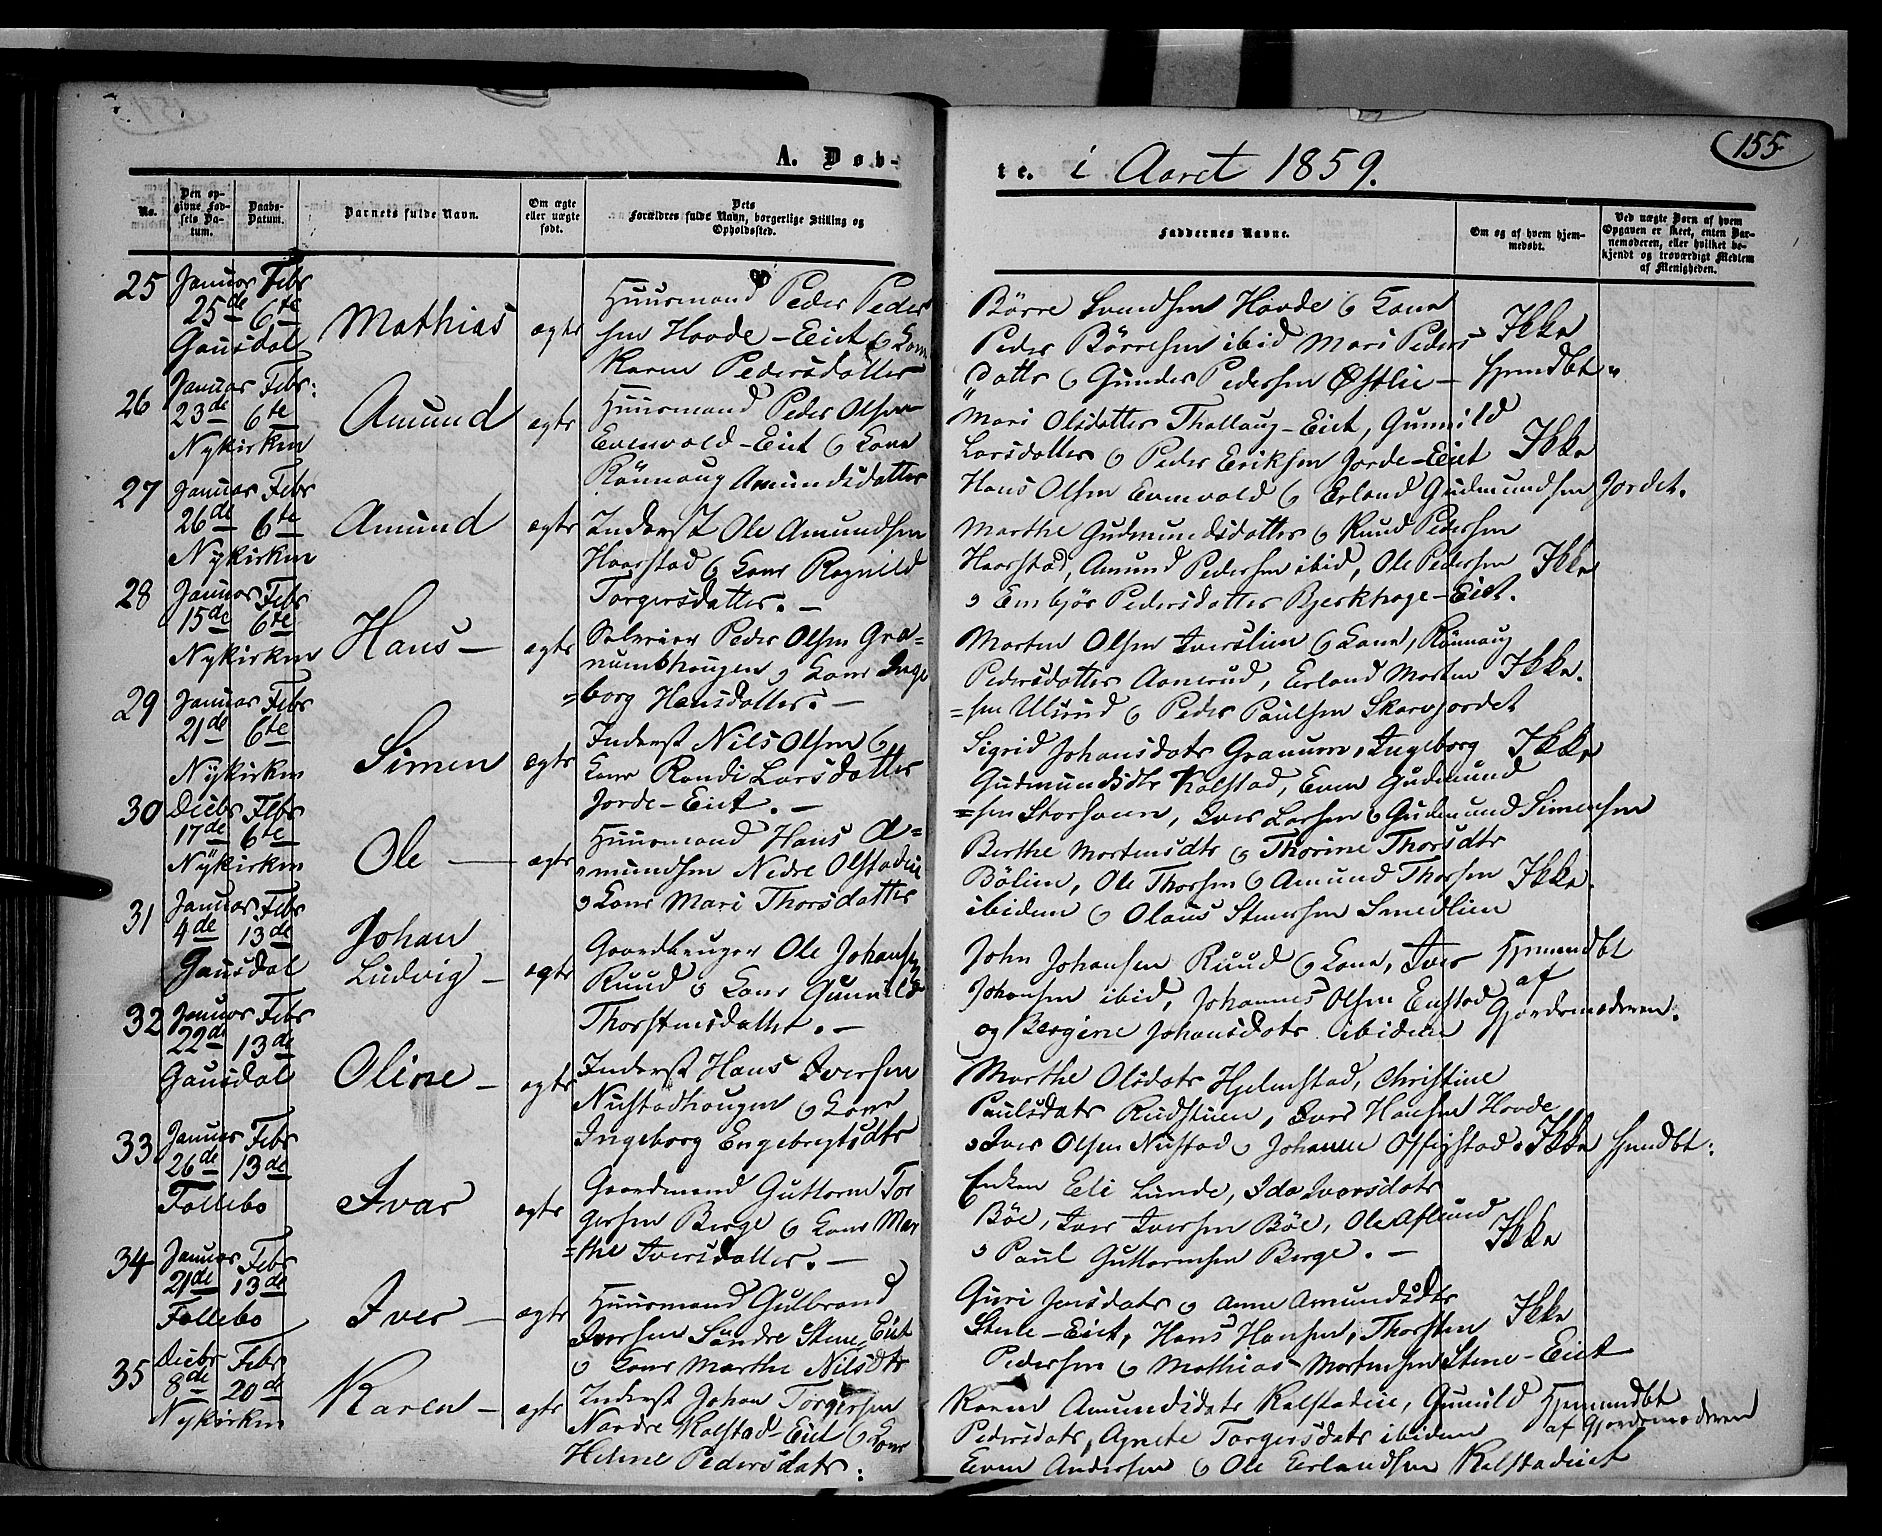 155
A. Døb-
te. i Aaret 1859.
No.
Den opgivne Fødsels Datum.
Daabs-Datum.
Barnets fulde Navn.
Om ægte eller uægte født.
Dets Forældres fulde Navn, borgerlige Stilling og Opholdssted.
Faddernes Navne.
Om og af hvem hjemmedøbt.
Ved uægte Børn af hvem Opgaven er skeet, enten Barnemoderen, eller hvilket bekjendt og troværdigt Medlem af Menigheden.
25 Januar 25de Febr 6te Gausdal
Mathias
ægte
Huusmand Peder Peder
sen Hovde-Eiet & Kone
Karen Pedersdatter
Børre Svendsen Hovde & Kone
Peder Børresen ibid Mari Peders
datter & Gunder Pedersen Østlie -
Ikke
hjemdbt
26 Januar 23de Febr: 6te Nykirken
Amund
ægte
Huusmand Peder Olsen
Evenvold-Eiet & Kone
Rønnaug Amundsdatter
Mari Olsdatter Thallaug-Eiet, Gunnild
Larsdatter & Peder Eriksen Jorde-Eiet
Hans Olsen Evenvold & Erland Gudmundsen Jordet.
Ikke
27 Januar 26de Febr 6te Nykirken
Amund
ægte
Inderst Ole Amundsen
Haarstad & Kone Ragnild
Torgersdatter. -
Marthe Gudmundsdatter & Knud Pedersen
Haarstad, Amund Pedersen ibid, Ole Pedersen
& Embjør Pedersdatter Bjerkhage-Eiet.
Ikke
28 Januar 15de Febr 6te Nykirken
Hans -
ægte
Selveier Peder Olsen Gra=
numshougen & Kone Inge
=borg Hansdatter. -
Morten Olsen Iverslien & Kone, Rønnaug
Pedersdatter Aanerud, Erland Morten
=sen Ulsrud & Peder Paulsen Skarvjordet
Ikke.
29 Januar 21de Febr 6te Nykirken
Simen
ægte
Inderst Nils Olsen &
Kone Randi Larsdatter
Jorde-Eiet. -
Sigrid Johansdatr Granum, Ingeborg
Gudmundsdtr Kalstad, Even Gudmund
=sen Storhaven, Iver Larsen & Gudmund Simensen
Ikke
30 Decbr 17de Febr 6te Nykirken
Ole -
ægte
Huusmand Hans A=
mundsen Nedre Olstadeie
& Kone Mari Thorsdatter
Berthe Mortensdtr & Thorine Thorsdtr
Bølien, Ole Thorsen & Amund Thorsen
ibidem & Olaus Steensen Smedlien
Ikke.
31 Januar 4de Febr 13de Gausdal
Johan
Ludvig -
ægte
Gaardbruger Ole Johansen
Ruud & Kone Gunnild
Thorstensdatter. -
John Johansen Ruud & Kone, Iver
Johansen ibid, Johannes Olsen Enstad
og Bergine Johansdatr ibidem
Hjemmedbt
af
Gjordemoderen.
32 Januar 22de Febr 13de Gausdal
Oline -
ægte
Inderst Hans Iversen
Nustadhougen & Kone
Ingeborg Engebregtsdtr
Marthe Olsdatr Hjelmstad, Christine
Paulsdatr Rudstuen, Iver Hansen Hovde
& Iver Olsen Nustad & Johanne Offigstad
Ikke hjemdbt:
33 Januar 26de Febr 13de Follebo
Ivar
ægte
Gaardmand Guttorm Tor
gersen Berge & Kone Mar
=the Iversdatter. -
Enken Eli Lunde, Ida Iversdatr
Bøe, Iver Iversen Bøe, Ole Aslund
& Paul Guttormsen Berge. -
Ikke
34 Januar 21de Febr 13de Follebo
Iver -
ægte
Huusmand Gulbrand
Iversen Søndre Steene Eiet
& Kone Marthe Nilsdtr
Guri Jensdatr & Anne Amundsdtr
Steele-Eiet, Hans Hansen, Thorsten
Pedersen & Mathias Mortensen Stene-Eiet
Ikke
35 Decbr 8de Febr 20de Nykirken
Karen -
ægte
Inderst Johan Torgersen
Nordre Kalstad-Eiet & Kone
Helene Pedersdatr:
Karen Amundsdatr Kalstadeie, Gunild
Pedersdatr, Agnete Torgersdatr ibidem
Even Andersen & Ole Erlandsen Kalstadeiet
Hjemmedbt
af Gjordemoderen